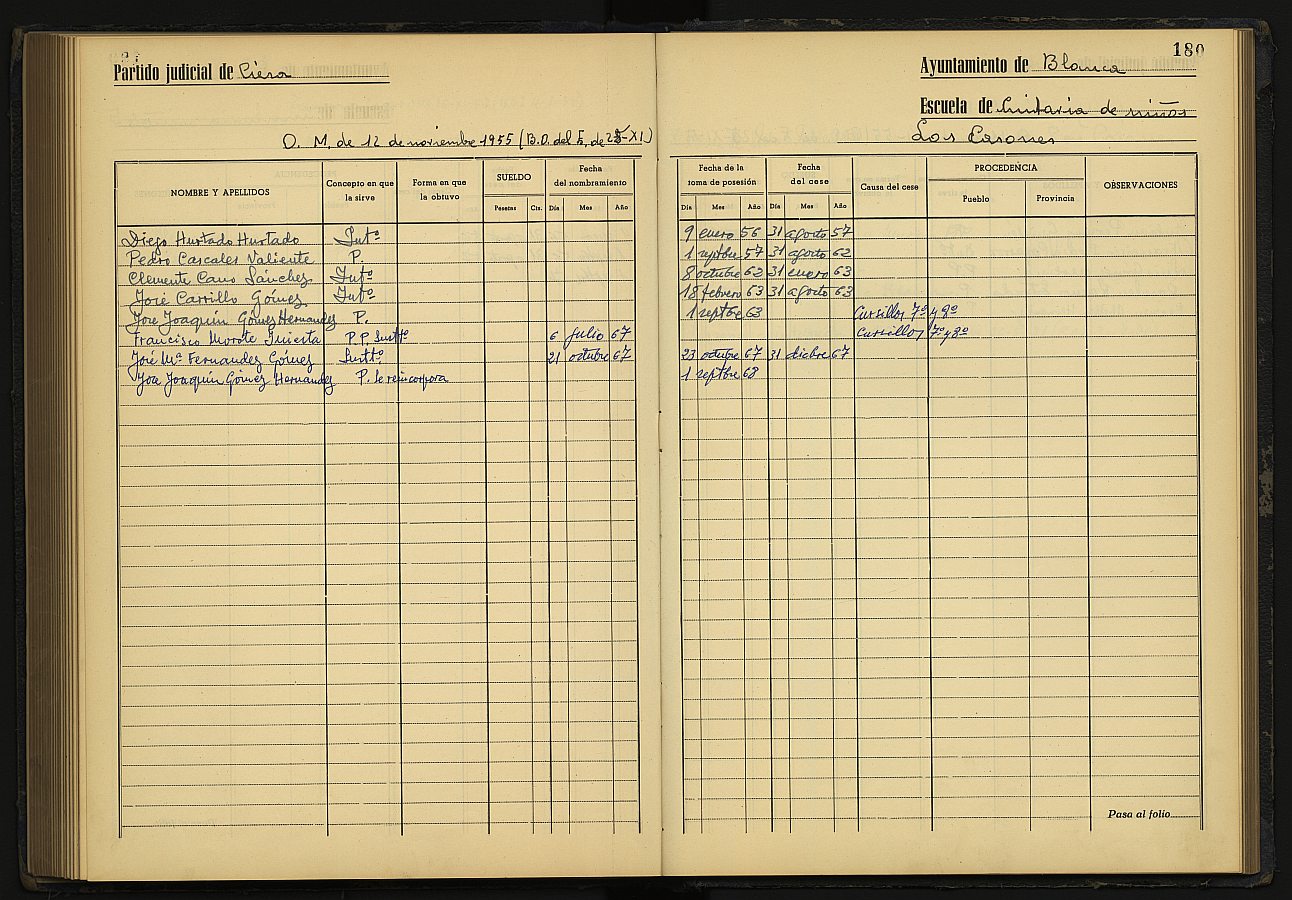 180
Partido judicial de Cieza
Ayuntamiento de Blanca
Escuela de Unitaria de niños
Los Casones
O. M. de 12 de noviembre 1955 (B.O. del E. de 25-XI)
NOMBRE Y APELLIDOS Concepto en que la sirve Forma en que la obtuvo SUELDO Fecha del nombramiento Fecha de la toma de posesión Fecha del cese Causa del cese PROCEDENCIA OBSERVACIONES
Pesetas Cts. Día Mes Año Día Mes Año Día Mes Año Pueblo Provincia
Diego Hurtado Hurtado Intº 9 enero 56 31 agosto 57
Pedro Cascales Valiente P. 1 septbre 57 31 agosto 62
Clemente Cano Sánchez Intº 8 octubre 62 31 enero 63
José Carrillo Gómez Intº 18 febrero 63 31 agosto 63
Jose Joaquín Gómez Hernandez P. 1 septbre 63 Cursillos 7º y 8º
Francisco Morote Iniesta P. P. Sustº 6 julio 67 Cursillos 7º y 8º
José Mª Fernandez Gómez Susttº 21 octubre 67 23 octubre 67 31 dicbre 67
Jose Joaquín Gómez Hernandez P. Se reincorpora 1 septbre 68
Pasa al folio